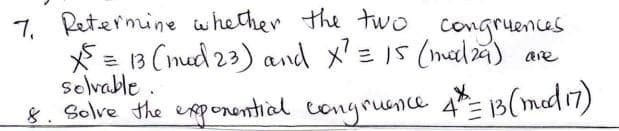 7. Retermine whether the two congruences
x⁵ ≡ 13 (mod 23) and x⁷ ≡ 15 (mod 29) are
solvable.
8. Solve the exponential congruence 4ˣ ≡ 13 (mod 17)